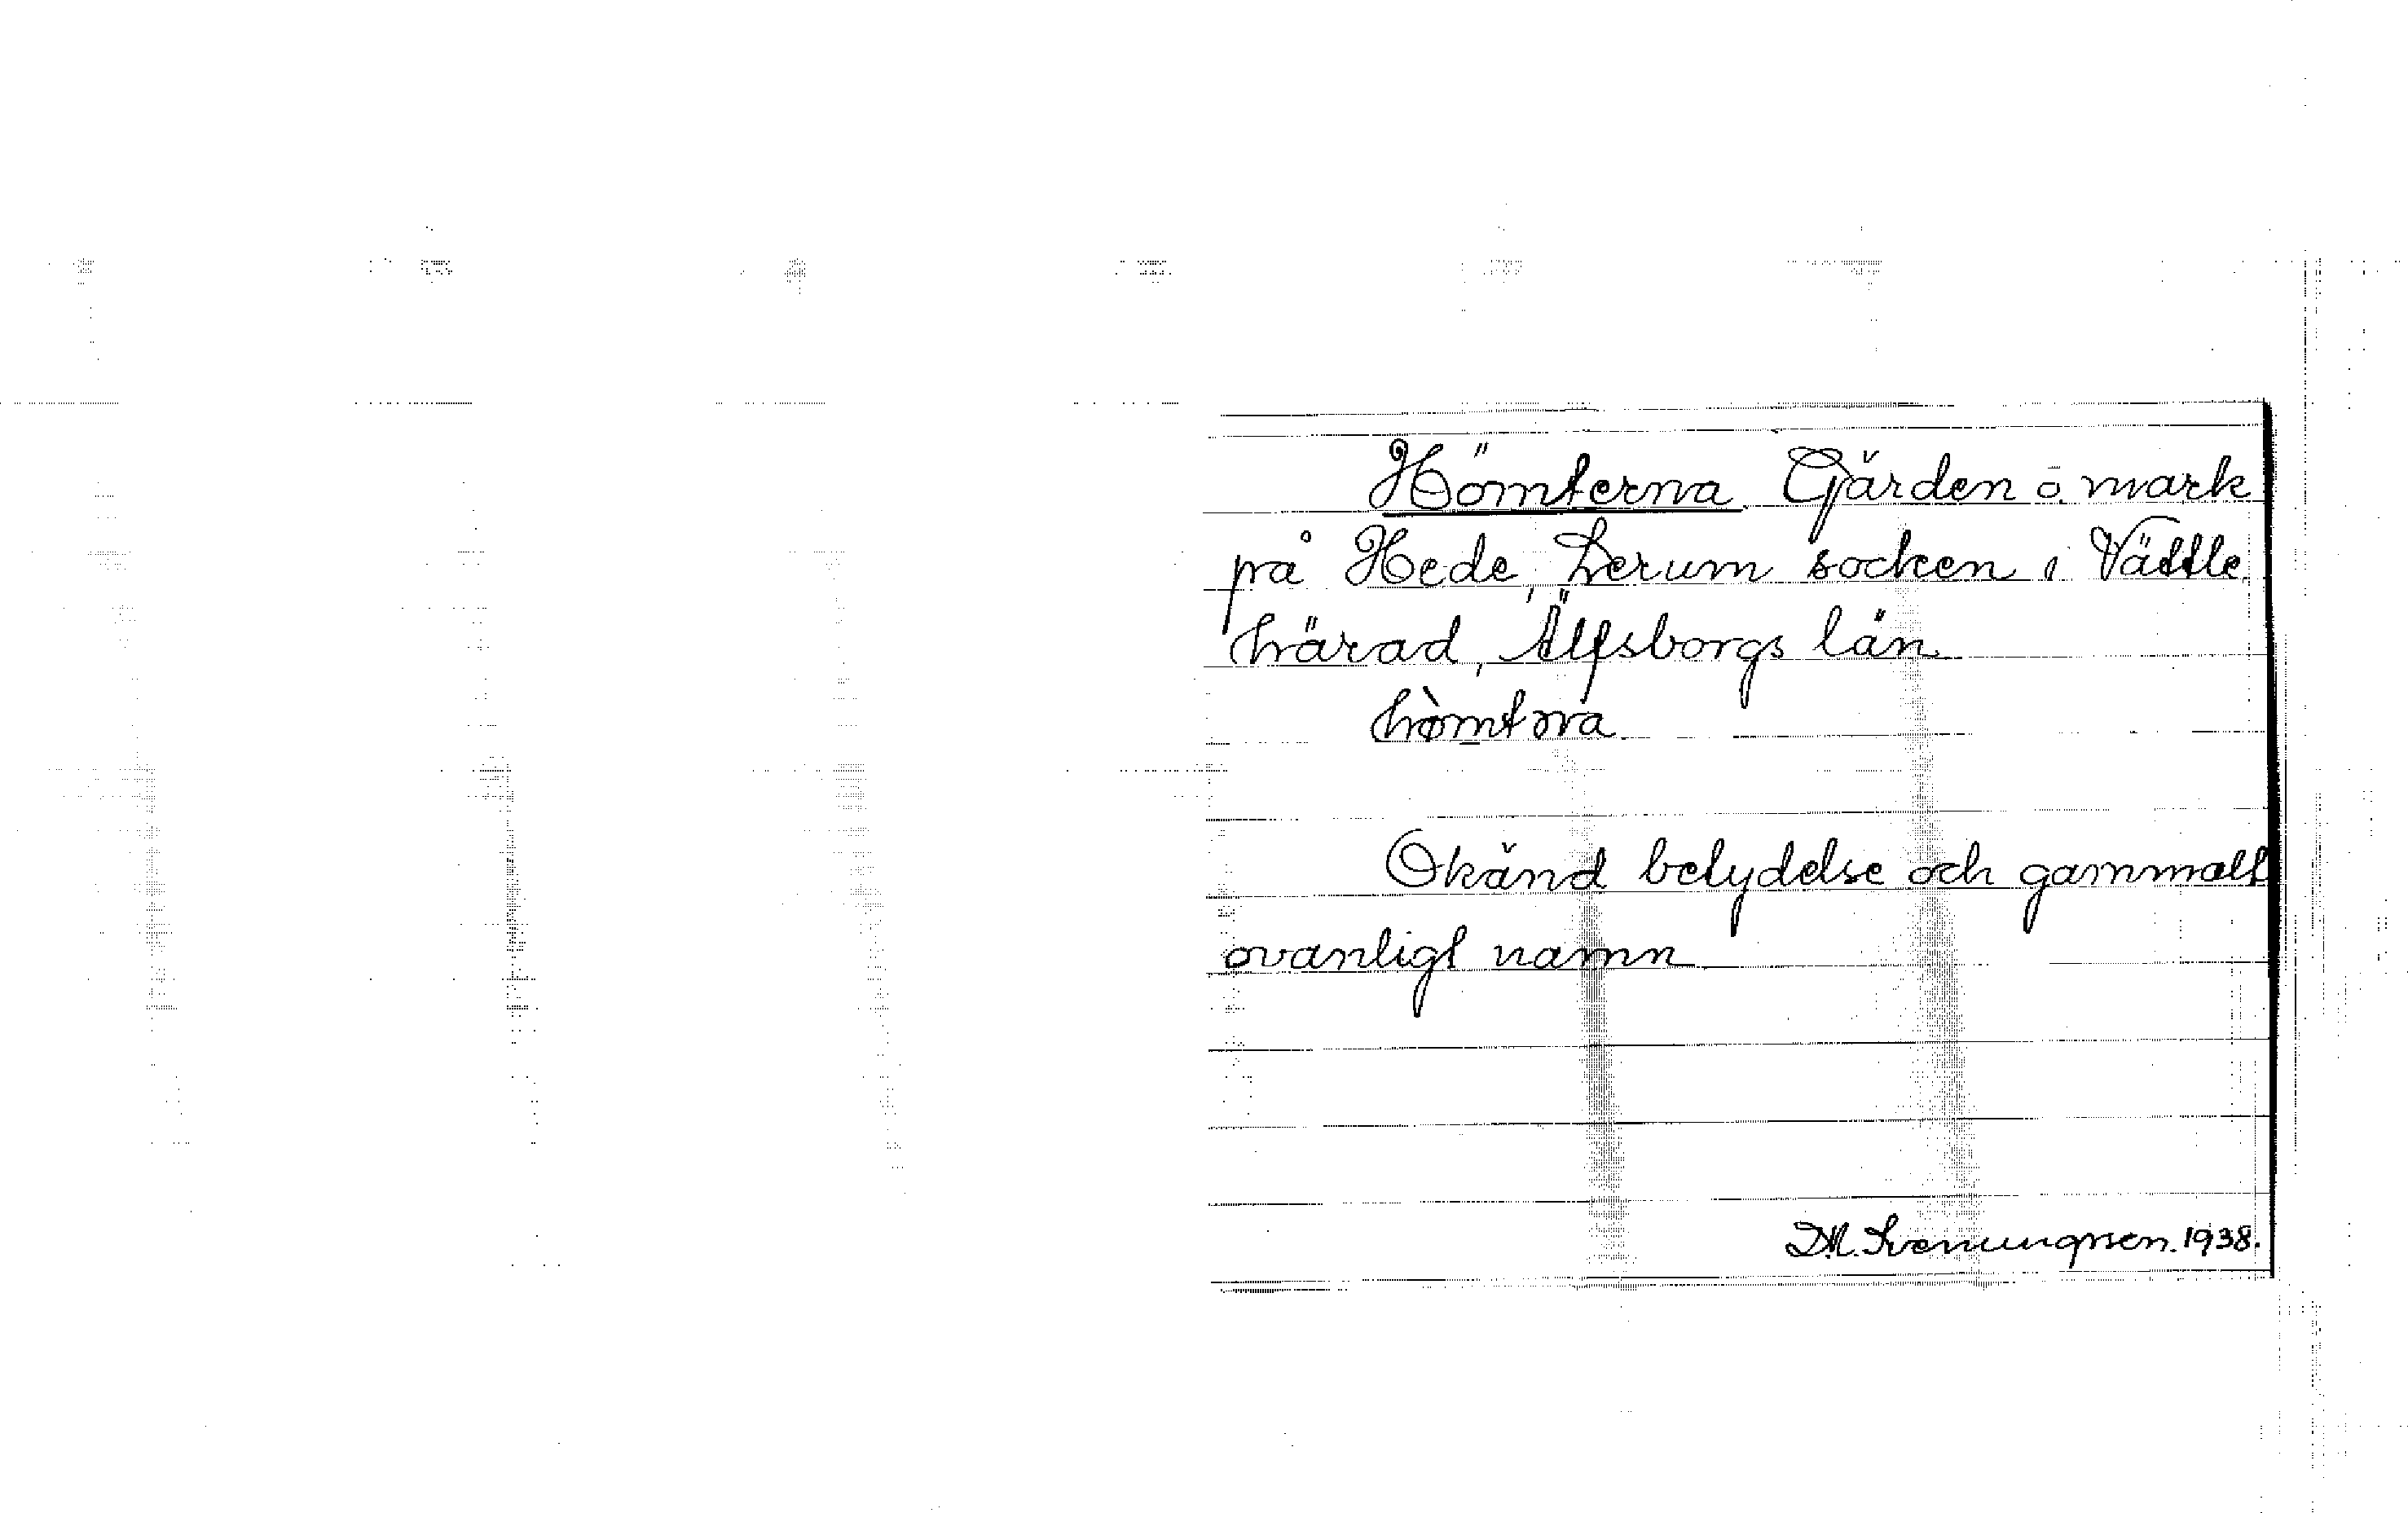 Hömterna Gärden o. mark
på Hede, Lerum socken i Vättle
härad, Älfsborgs län.
hömtɔra
Okänd betydelse och gammalt
ovanligt namn
D.M. Svenungsen. 1938.